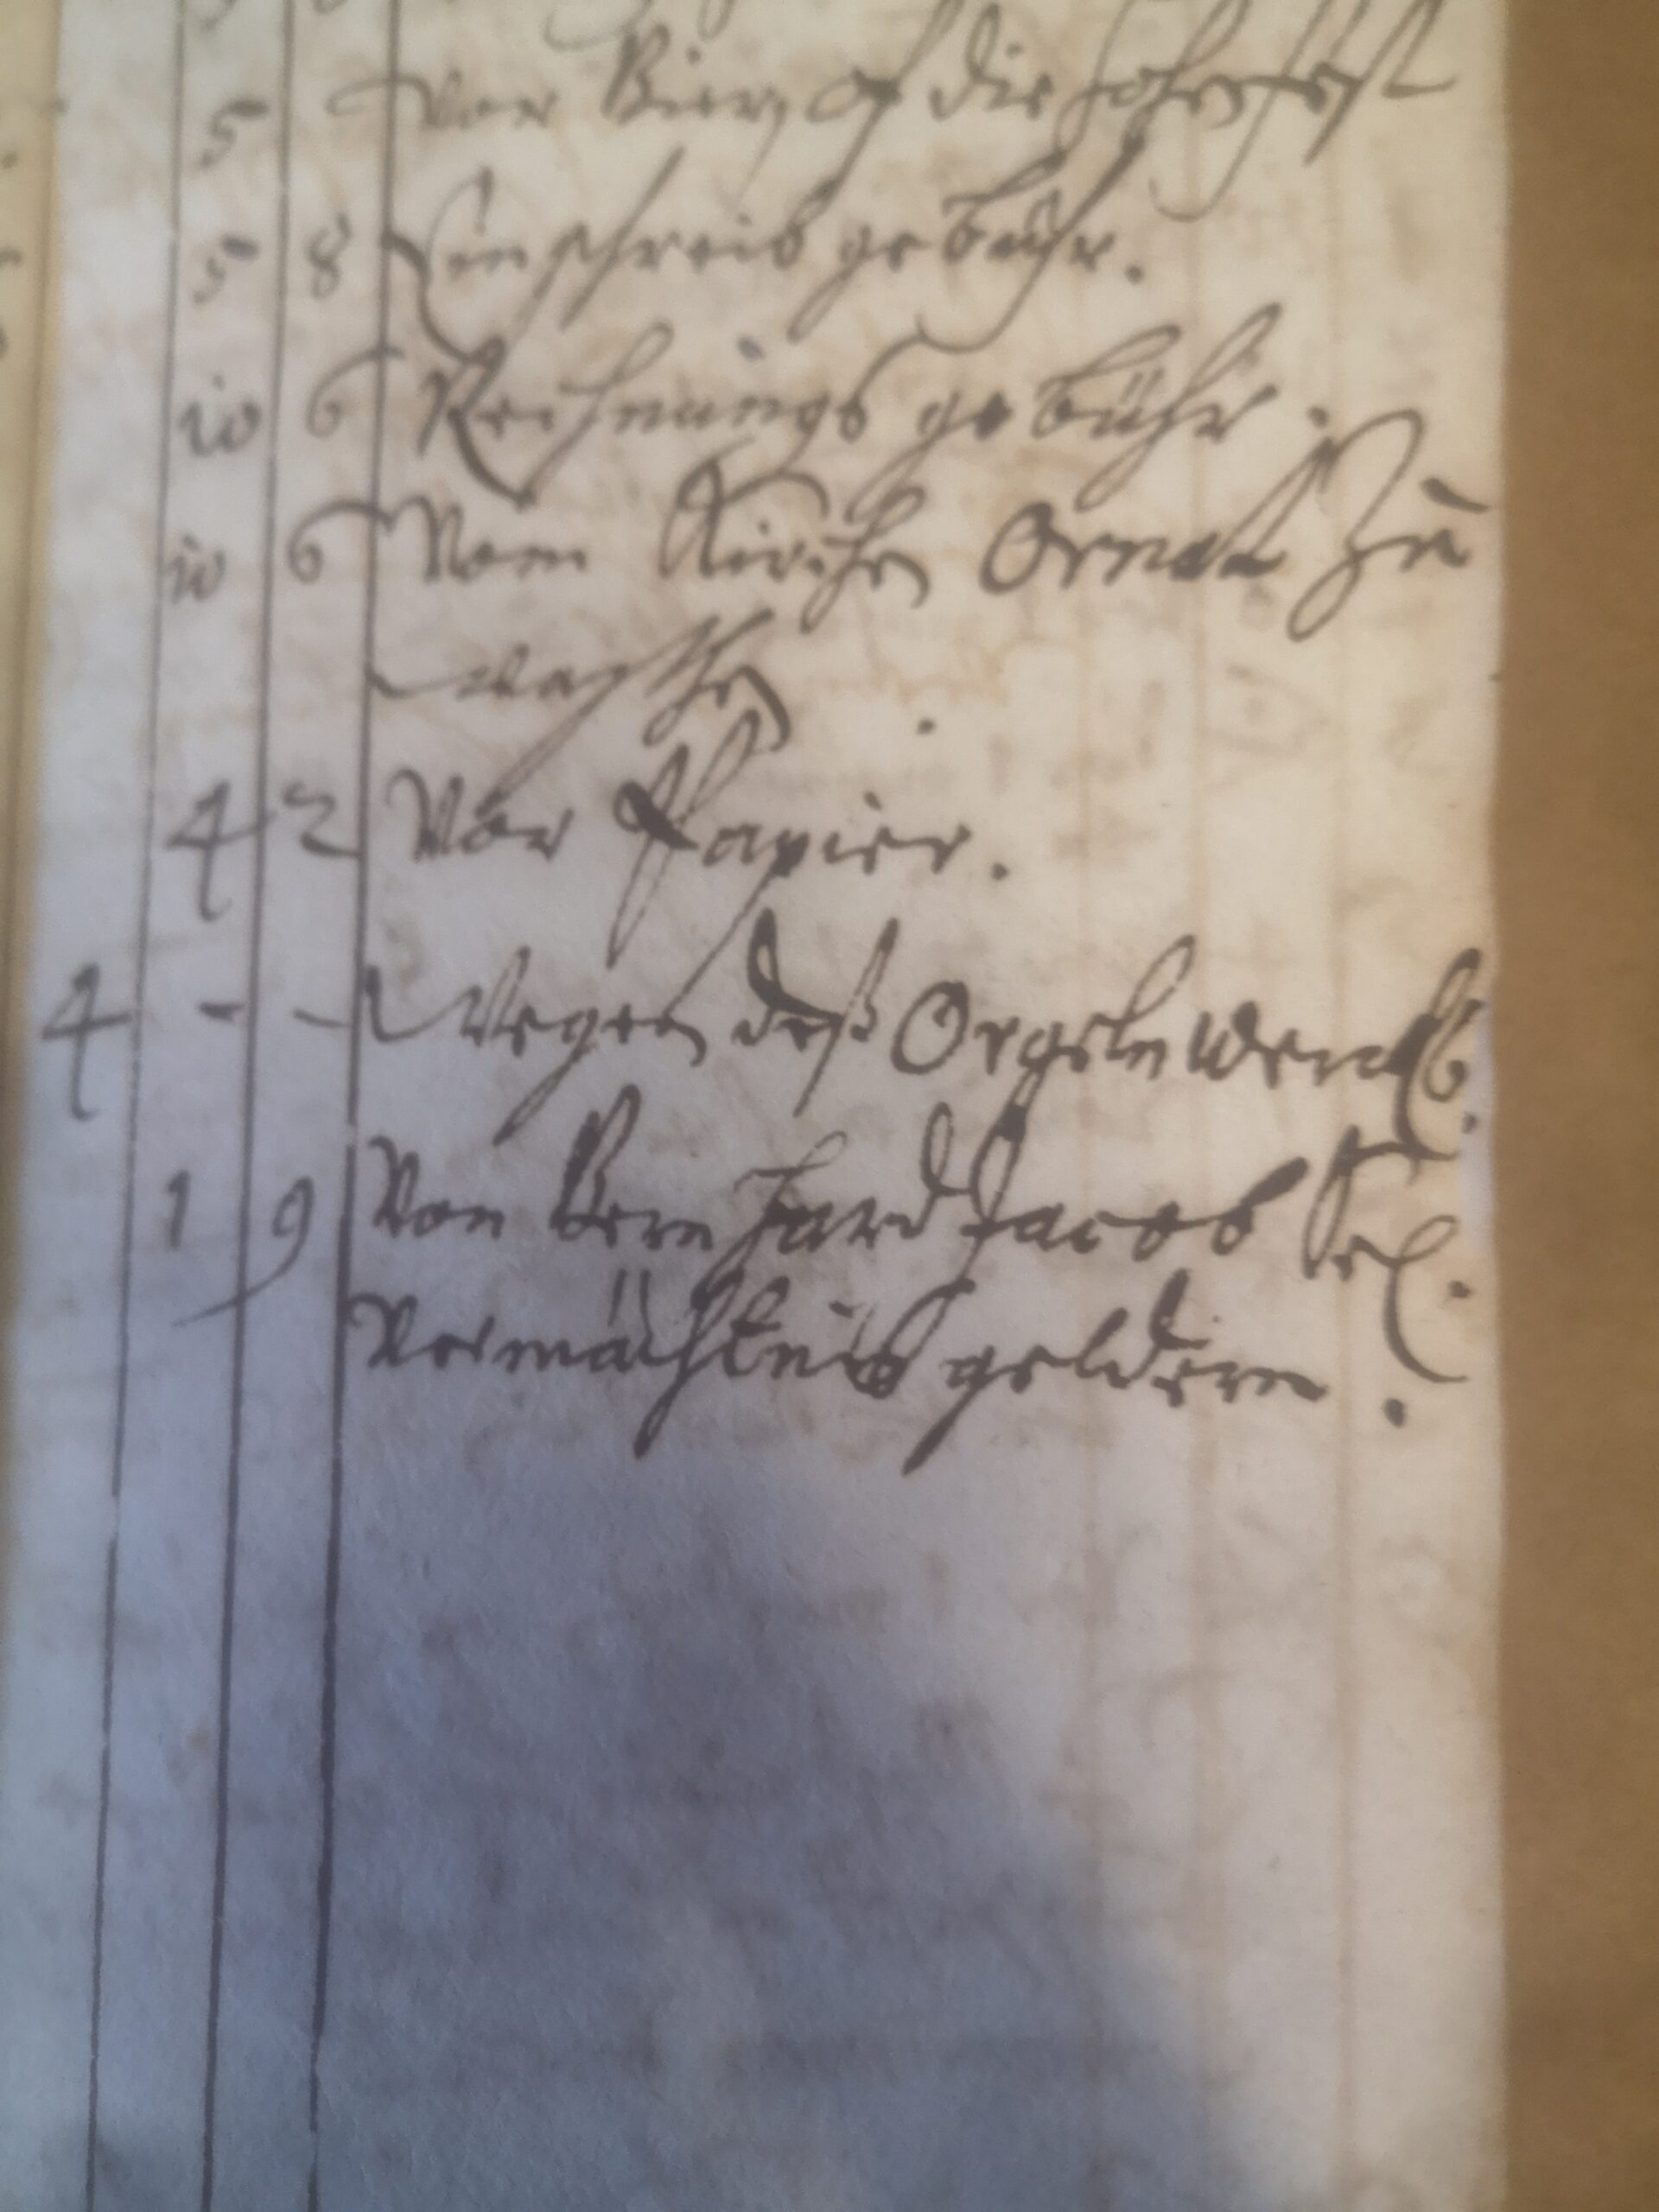 5 vor Bier of die hohe fest
5 8 Einschreib gebühr.
10 6 Rechnungs gebühr.
10 6 Vom Kirchen Ornat Zu
waschen
4 2 Vor Papier.
4 - - Wegen deß Orgeln wercks.
1 9 Von Bernhard Jacob Sel.
Vermächtnis geldern.